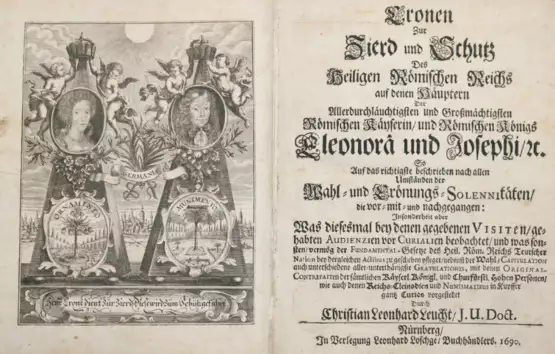 GERMANIA
ORNAMENTO
MUNIMENTO
Cronen
Zur
Zierd und Schutz
Des
Heiligen Römischen Reichs
auf denen Häuptern
Der
Allerdurchläuchtigsten und Großmächtigsten
Römischen Käyserin/ und Römischen Königs
Eleonorä und Josephi/ ꝛc.
So
Auf das richtigste beschrieben nach allen
Umständen der
Wahl- und Crönungs-SOLENNItäten/
die vor- mit- und nachgegangen:
Insonderheit aber
Was diesesmal bey denen gegebenen VISITEN/ ge-
habten AUDIENZIEN vor CURIALIEN beobachtet/ und was son-
sten/ vermög der FUNDAMENTAL-Gesetze des Heil. Röm. Reichs Teutscher
Nation bey dergleichen Actibus zu geschehen pfleget/ nebenst der Wahl-CAPITULATION
auch unterschiedene aller-unterthänigste GRATULATIONES, mit denen ORIGINAL-
CONTREFAITEN der sämtlichen Käyserl. Königl. und Churfürstl. Hohen Personen/
wie auch denen Reichs-Cleinodien und NUMISMATIBUS in Kupffer
gantz Curios vorgestellet
Durch
Christian Leonhard Leucht/ J. U. Doct.
Nürnberg/
In Verlegung Leonhard Loschge/ Buchhändlers. 1690.